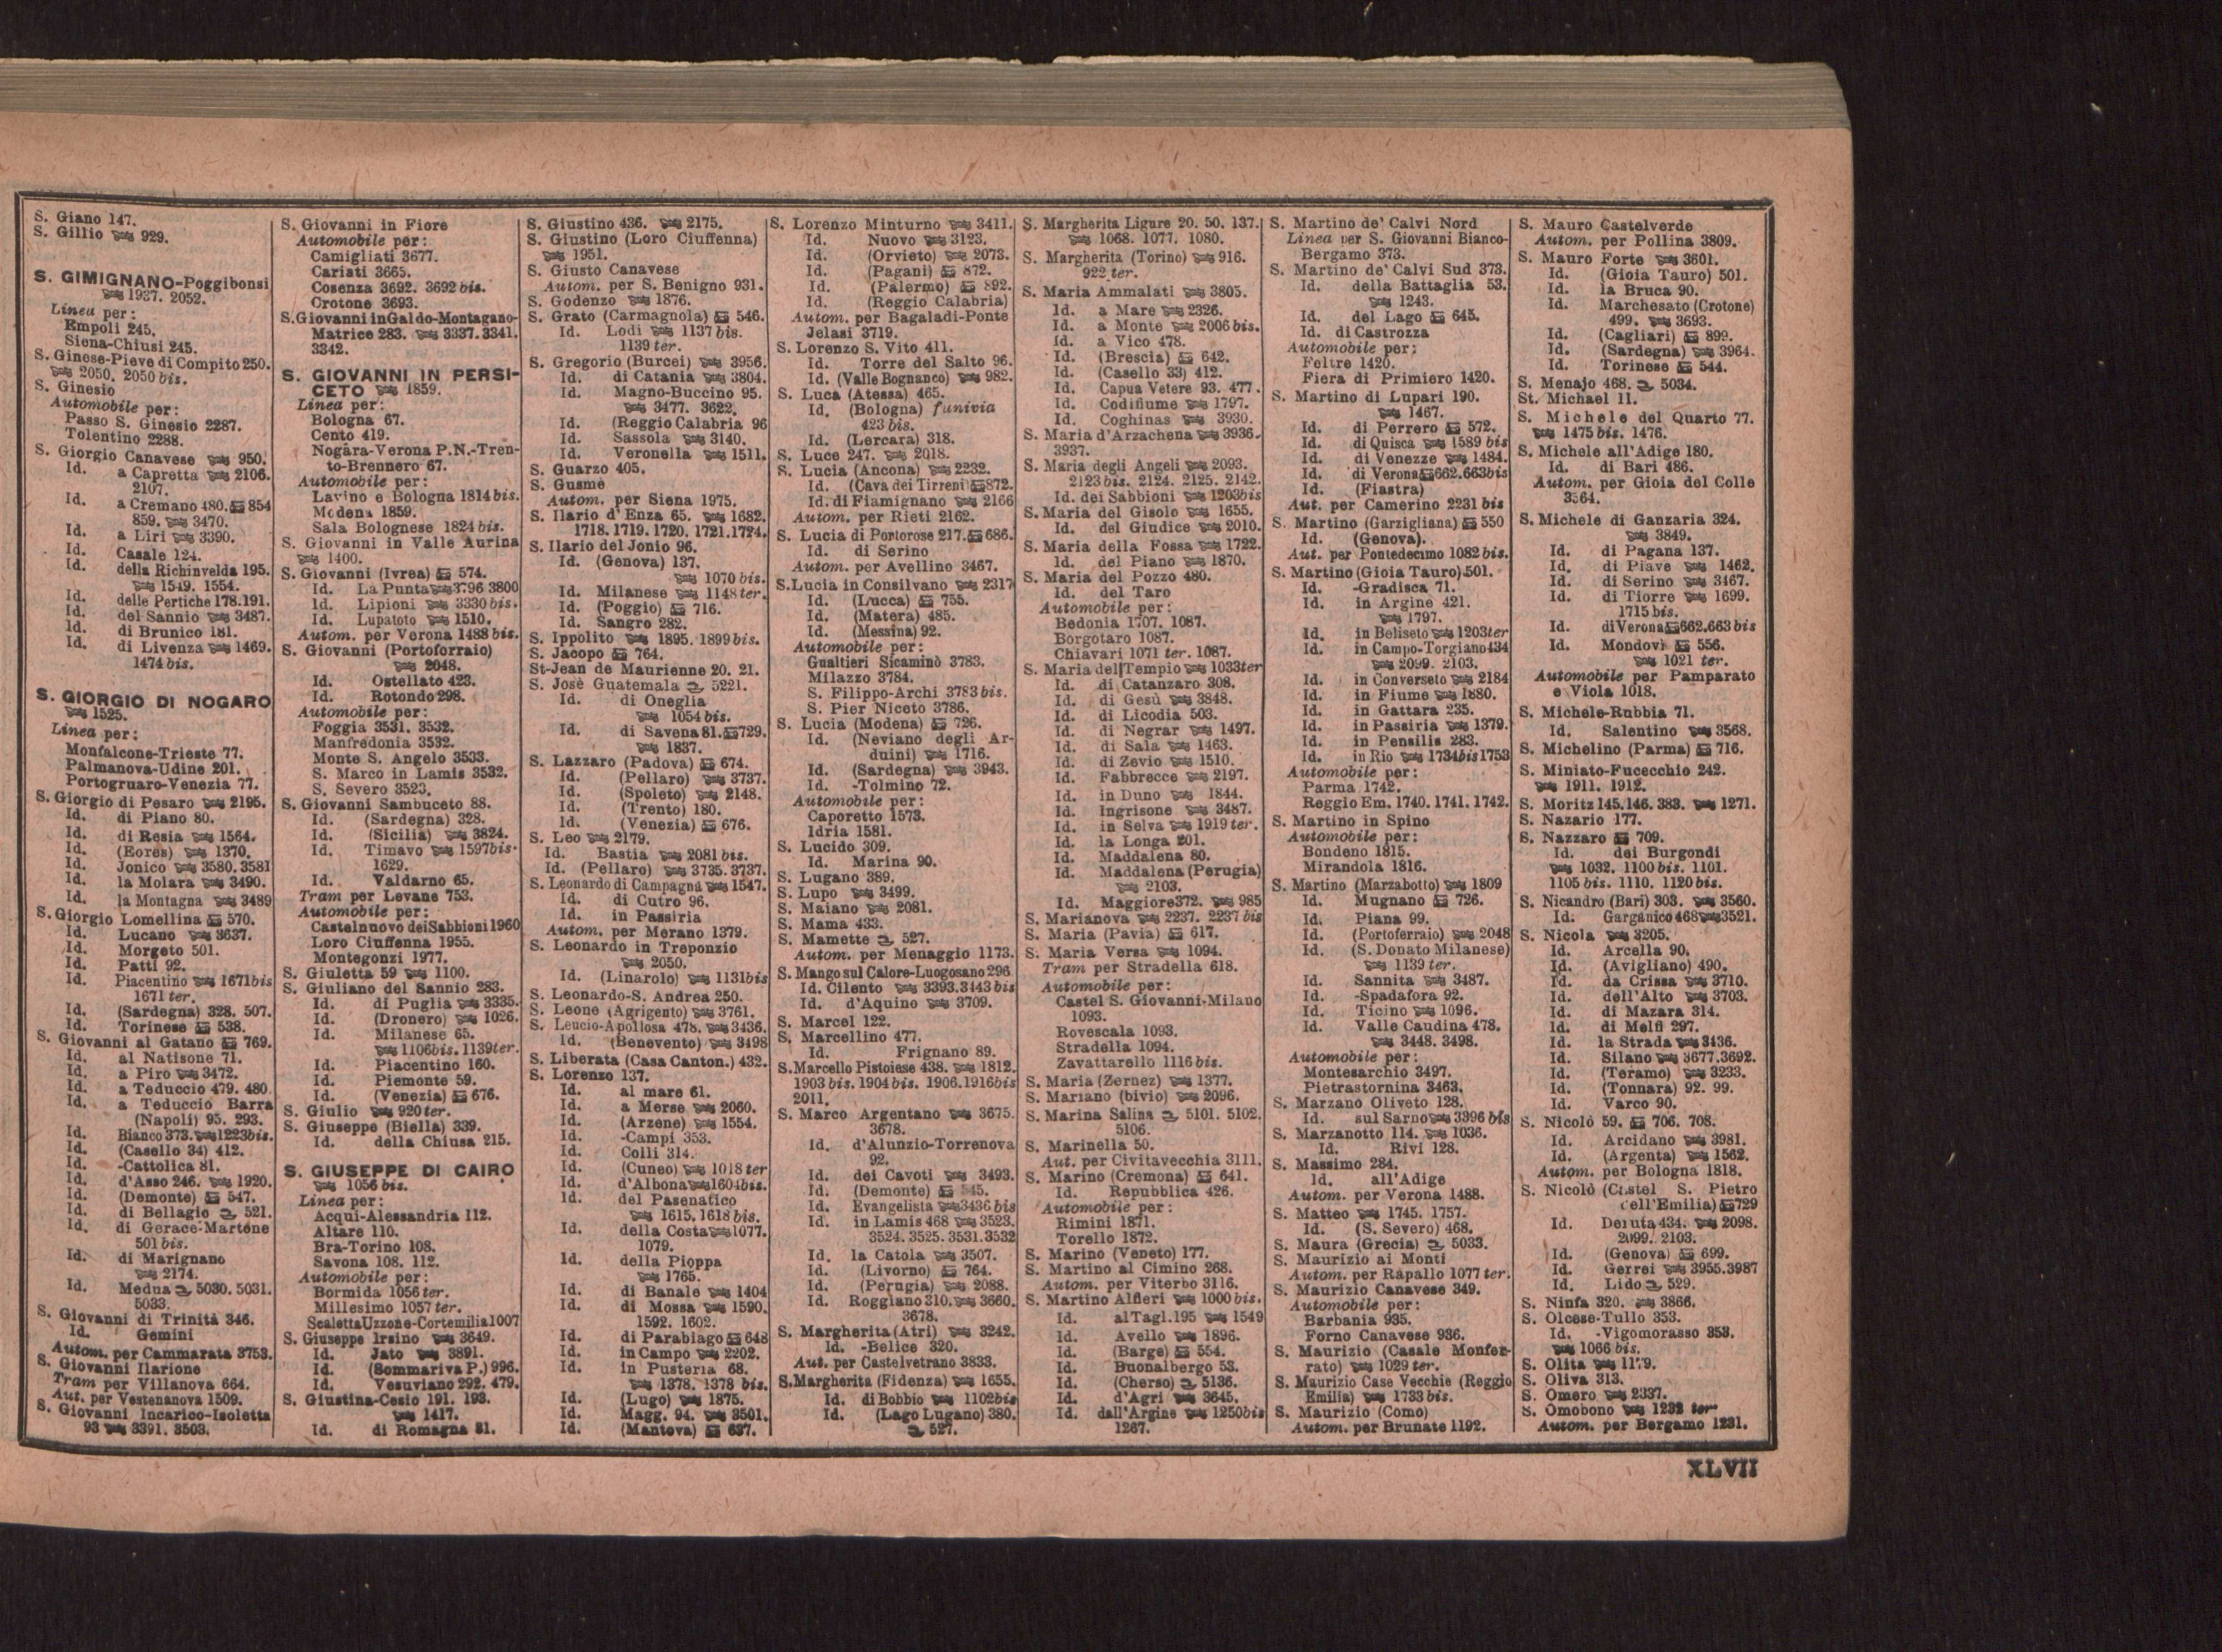 S. Giano 147.
S. Gillio 929.
S. GIMIGNANO-Poggibonsi
1937. 2052.
Linea per:
Empoli 245.
Siena-Chiusi 245.
S. Ginese-Pieve di Compito 250.
2050. 2050 bis.
S. Ginesio
Automobile per:
Passo S. Ginesio 2287.
Tolentino 2288.
S. Giorgio Canavese 950.
Id. a Capretta 2106.
2107.
Id. a Cremano 480. 854
859. 3470.
Id. a Liri 3390.
Id. Casale 124.
Id. della Richinvelda 195.
1549. 1554.
Id. delle Pertiche 178.191.
Id. del Sannio 3487.
Id. di Brunico 181.
Id. di Livenza 1469.
1474 bis.
S. GIORGIO DI NOGARO
1525.
Linea per:
Monfalcone-Trieste 77.
Palmanova-Udine 201.
Portogruaro-Venezia 77.
S. Giorgio di Pesaro 2195.
Id. di Piano 80.
Id. di Resia 1564.
Id. (Eores) 1370.
Id. Jonico 3580. 3581
Id. la Molara 3490.
Id. la Montagna 3489
S. Giorgio Lomellina 570.
Id. Lucano 3637.
Id. Morgeto 501.
Id. Patti 92.
Id. Piacentino 1671bis
1671 ter.
Id. (Sardegna) 328. 507.
Id. Torinese 538.
S. Giovanni al Gatano 769.
Id. al Natisone 71.
Id. a Piro 3472.
Id. a Teduccio 479. 480.
Id. a Teduccio Barra
(Napoli) 95. 293.
Id. Bianco 373. 1223bis.
Id. (Casello 34) 412.
Id. -Cattolica 81.
Id. d'Asso 246. 1920.
Id. (Demonte) 547.
Id. di Bellagio 521.
Id. di Gerace-Martone
501 bis.
Id. di Marignano
2174.
Id. Medua 5030. 5031.
5033.
S. Giovanni di Trinità 346.
Id. Gemini
Autom. per Cammarata 3753.
S. Giovanni Ilarione
Tram per Villanova 664.
Aut. per Vestenanova 1509.
S. Giovanni Incarico-Isoletta
93 3391. 3503.
S. Giovanni in Fiore
Automobile per:
Camigliati 3677.
Cariati 3665.
Cosenza 3692. 3692 bis.
Crotone 3693.
S.Giovanni inGaldo-Montagano-
Matrice 283. 3337. 3341.
3342.
S. GIOVANNI IN PERSI-
CETO 1859.
Linea per:
Bologna 67.
Cento 419.
Nogara-Verona P.N.-Tren-
to-Brennero 67.
Automobile per:
Lavino e Bologna 1814 bis.
Modena 1859.
Sala Bolognese 1824 bis.
S. Giovanni in Valle Aurina
1400.
S. Giovanni (Ivrea) 574.
Id. La Punta 3796 3800
Id. Lipioni 3330 bis.
Id. Lupatoto 1510.
Autom. per Verona 1488 bis.
S. Giovanni (Portoforraio)
2048.
Id. Ostellato 423.
Id. Rotondo 298.
Automobile per:
Foggia 3531. 3532.
Manfredonia 3532.
Monte S. Angelo 3533.
S. Marco in Lamis 3532.
S. Severo 3523.
S. Giovanni Sambuceto 88.
Id. (Sardegna) 328.
Id. (Sicilia) 3824.
Id. Timavo 1597bis.
1629.
Id. Valdarno 65.
Tram per Levane 753.
Automobile per:
Castelnuovo deiSabbioni1960
Loro Ciuffenna 1955.
Montegonzi 1977.
S. Giuletta 59 1100.
S. Giuliano del Sannio 283.
Id. di Puglia 3335.
Id. (Dronero) 1026.
Id. Milanese 65.
1106bis. 1139ter.
Id. Piacentino 160.
Id. Piemonte 59.
Id. (Venezia) 676.
S. Giulio 920 ter.
S. Giuseppe (Biella) 339.
Id. della Chiusa 215.
S. GIUSEPPE DI CAIRO
1056 bis.
Linea per:
Acqui-Alessandria 112.
Altare 110.
Bra-Torino 108.
Savona 108. 112.
Automobile per:
Bormida 1056 ter.
Millesimo 1057 ter.
ScalettaUzzone-Cortemilia1007
S. Giuseppe Irsino 3649.
Id. Jato 3891.
Id. (Sommariva P.) 996.
Id. Vesuviano 292. 479.
S. Giustina-Cesio 191. 193.
1417.
Id. di Romagna 81.
S. Giustino 436. 2175.
S. Giustino (Loro Ciuffenna)
1951.
S. Giusto Canavese
Autom. per S. Benigno 931.
S. Godenzo 1876.
S. Grato (Carmagnola) 546.
Id. Lodi 1137 bis.
1139 ter.
S. Gregorio (Burcei) 3956.
Id. di Catania 3804.
Id. Magno-Buccino 95.
3477. 3622.
Id. (Reggio Calabria 96
Id. Sassola 3140.
Id. Veronella 1511.
S. Guarzo 405.
S. Gusmè
Autom. per Siena 1975.
S. Ilario d'Enza 65. 1682.
1718. 1719. 1720. 1721.1724.
S. Ilario del Jonio 96.
Id. (Genova) 137.
1070 bis.
Id. Milanese 1148 ter.
Id. (Poggio) 716.
Id. Sangro 282.
S. Ippolito 1895. 1899 bis.
S. Jacopo 764.
St-Jean de Maurienne 20. 21.
S. Josè Guatemala 5221.
Id. di Oneglia
1054 bis.
Id. di Savena 81. 729.
1837.
S. Lazzaro (Padova) 674.
Id. (Pellaro) 3737.
Id. (Spoleto) 2148.
Id. (Trento) 180.
Id. (Venezia) 676.
S. Leo 2179.
Id. Bastia 2081 bis.
Id. (Pellaro) 3735. 3737.
S. Leonardo di Campagna 1547.
Id. di Cutro 96.
Id. in Passiria
Autom. per Merano 1379.
S. Leonardo in Treponzio
2050.
Id. (Linarolo) 1131bis
S. Leonardo-S. Andrea 250.
S. Leone (Agrigento) 3761.
S. Leucio-Apollosa 478. 3436.
Id. (Benevento) 3498
S. Liberata (Casa Canton.) 432.
S. Lorenzo 137.
Id. al mare 61.
Id. a Merse 2060.
Id. (Arzene) 1554.
Id. -Campi 353.
Id. Colli 314.
Id. (Cuneo) 1018 ter
Id. d'Albona 1604bis.
Id. del Pasenatico
1615. 1618 bis.
Id. della Costa 1077.
1079.
Id. della Pioppa
1765.
Id. di Banale 1404
Id. di Mossa 1590.
1592. 1602.
Id. di Parabiago 648
Id. in Campo 2202.
Id. in Pusteria 68.
1378. 1378 bis.
Id. (Lugo) 1875.
Id. Magg. 94. 3501.
Id. (Mantova) 637.
S. Lorenzo Minturno 3411.
Id. Nuovo 3123.
Id. (Orvieto) 2073.
Id. (Pagani) 872.
Id. (Palermo) 892.
Id. (Reggio Calabria)
Autom. per Bagaladi-Ponte
Jelasi 3719.
S. Lorenzo S. Vito 411.
Id. Torre del Salto 96.
Id. (Valle Bognanco) 982.
S. Luca (Atessa) 465.
Id. (Bologna) funivia
423 bis.
Id. (Lercara) 318.
S. Luce 247. 2018.
S. Lucia (Ancona) 2232.
Id. (Cava dei Tirreni) 872.
Id. di Fiamignano 2166
Autom. per Rieti 2162.
S. Lucia di Portorose 217. 686.
Id. di Serino
Autom. per Avellino 3467.
S.Lucia in Consilvano 2317
Id. (Lucca) 755.
Id. (Matera) 485.
Id. (Messina) 92.
Automobile per:
Gualtieri Sicaminò 3783.
Milazzo 3784.
S. Filippo-Archi 3783 bis.
S. Pier Niceto 3786.
S. Lucia (Modena) 726.
Id. (Neviano degli Ar-
duini) 1716.
Id. (Sardegna) 3943.
Id. -Tolmino 72.
Automobile per:
Caporetto 1573.
Idria 1581.
S. Lucido 309.
Id. Marina 90.
S. Lugano 389.
S. Lupo 3499.
S. Maiano 2081.
S. Mama 433.
S. Mamette 527.
Autom. per Menaggio 1173.
S. Mango sul Calore-Luogosano 296
Id. Cilento 3393.3443 bis
Id. d'Aquino 3709.
S. Marcel 122.
S. Marcellino 477.
Id. Frignano 89.
S.Marcello Pistoiese 438. 1812.
1903 bis. 1904 bis. 1906.1916bis
2011.
S. Marco Argentano 3675.
3678.
Id. d'Alunzio-Torrenova
92.
Id. dei Cavoti 3493.
Id. (Demonte) 545.
Id. Evangelista 3436 bis
Id. in Lamis 468 3523.
3524. 3525. 3531.3532
Id. la Catola 3507.
Id. (Livorno) 764.
Id. (Perugia) 2088.
Id. Roggiano 310. 3660.
3678.
S. Margherita (Atri) 3242.
Id. -Belice 320.
Aut. per Castelvetrano 3833.
S.Margherita (Fidenza) 1655.
Id. di Bobbio 1102bis
Id. (Lago Lugano) 380.
527.
S. Margherita Ligure 20. 50. 137.
1068. 1077. 1080.
S. Margherita (Torino) 916.
922 ter.
S. Maria Ammalati 3805.
Id. a Mare 2326.
Id. a Monte 2006 bis.
Id. a Vico 478.
Id. (Brescia) 642.
Id. (Casello 33) 412.
Id. Capua Vetere 93. 477.
Id. Codifiume 1797.
Id. Coghinas 3930.
S. Maria d'Arzachena 3936.
3937.
S. Maria degli Angeli 2093.
2123 bis. 2124. 2125. 2142.
Id. dei Sabbioni 1203bis
S. Maria del Gisolo 1655.
Id. del Giudice 2010.
S. Maria della Fossa 1722.
Id. del Piano 1870.
S. Maria del Pozzo 480.
Id. del Taro
Automobile per:
Bedonia 1707. 1087.
Borgotaro 1087.
Chiavari 1071 ter. 1087.
S. Maria del Tempio 1033ter
Id. di Catanzaro 308.
Id. di Gesù 3848.
Id. di Licodia 503.
Id. di Negrar 1497.
Id. di Sala 1463.
Id. di Zevio 1510.
Id. Fabbrecce 2197.
Id. in Duno 1844.
Id. Ingrisone 3487.
Id. in Selva 1919 ter.
Id. la Longa 201.
Id. Maddalena 80.
Id. Maddalena (Perugia)
2103.
Id. Maggiore 372. 985
S. Marianova 2237. 2237 bis
S. Maria (Pavia) 617.
S. Maria Versa 1094.
Tram per Stradella 618.
Automobile per:
Castel S. Giovanni-Milano
1093.
Rovescala 1093.
Stradella 1094.
Zavattarello 1116 bis.
S. Maria (Zernez) 1377.
S. Mariano (bivio) 2096.
S. Marina Salina 5101. 5102.
5106.
S. Marinella 50.
Aut. per Civitavecchia 3111.
S. Marino (Cremona) 641.
Id. Repubblica 426.
Automobile per:
Rimini 1871.
Torello 1872.
S. Marino (Veneto) 177.
S. Martino al Cimino 268.
Autom. per Viterbo 3116.
S. Martino Alfieri 1000 bis.
Id. al Tagl. 195 1549
Id. Avello 1896.
Id. (Barge) 554.
Id. Buonalbergo 53.
Id. (Cherso) 5136.
Id. d'Agri 3645.
Id. dall'Argine 1250bis
1267.
S. Martino de' Calvi Nord
Linea per S. Giovanni Bianco-
Bergamo 373.
S. Martino de' Calvi Sud 373.
Id. della Battaglia 53.
1243.
Id. del Lago 645.
Id. di Castrozza
Automobile per:
Feltre 1420.
Fiera di Primiero 1420.
S. Martino di Lupari 190.
1467.
Id. di Perrero 572.
Id. di Quisca 1589 bis
Id. di Venezze 1484.
Id. di Verona 662.663bis
Id. (Fiastra)
Aut. per Camerino 2231 bis
S. Martino (Garzigliana) 550
Id. (Genova).
Aut. per Pontedecimo 1082 bis.
S. Martino (Gioia Tauro) 501.
Id. -Gradisca 71.
Id. in Argine 421.
1797.
Id. in Beliseto 1203ter
Id. in Campo-Torgiano 434
2099. 2103.
Id. in Converseto 2184
Id. in Fiume 1880.
Id. in Gattara 235.
Id. in Passiria 1379.
Id. in Pensilis 283.
Id. in Rio 1734bis1753
Automobile per:
Parma 1742.
Reggio Em. 1740. 1741. 1742.
S. Martino in Spino
Automobile per:
Bondeno 1815.
Mirandola 1816.
S. Martino (Marzabotto) 1809
Id. Mugnano 726.
Id. Piana 99.
Id. (Portoferraio) 2048
Id. (S. Donato Milanese)
1139 ter.
Id. Sannita 3487.
Id. -Spadafora 92.
Id. Ticino 1096.
Id. Valle Caudina 478.
3448. 3498.
Automobile per:
Montesarchio 3497.
Pietrastornina 3463.
S. Marzano Oliveto 128.
Id. sul Sarno 3396 bis
S. Marzanotto 114. 1036.
Id. Rivi 128.
S. Massimo 284.
Id. all'Adige
Autom. per Verona 1488.
S. Matteo 1745. 1757.
Id. (S. Severo) 468.
S. Maura (Grecia) 5033.
S. Maurizio ai Monti
Autom. per Rapallo 1077 ter.
S. Maurizio Canavese 349.
Automobile per:
Barbania 935.
Forno Canavese 936.
S. Maurizio (Casale Monfer-
rato) 1029 ter.
S. Maurizio Case Vecchie (Reggio
Emilia) 1733 bis.
S. Maurizio (Como)
Autom. per Brunate 1192.
S. Mauro Castelverde
Autom. per Pollina 3809.
S. Mauro Forte 3601.
Id. (Gioia Tauro) 501.
Id. la Bruca 90.
Id. Marchesato (Crotone)
499. 3693.
Id. (Cagliari) 899.
Id. (Sardegna) 3964.
Id. Torinese 544.
S. Menajo 468. 5034.
St. Michael 11.
S. Michele del Quarto 77.
1475 bis. 1476.
S. Michele all'Adige 180.
Id. di Bari 486.
Autom. per Gioia del Colle
3564.
S. Michele di Ganzaria 324.
3849.
Id. di Pagana 137.
Id. di Piave 1462.
Id. di Serino 3467.
Id. di Tiorre 1699.
1715 bis.
Id. di Verona 662.663 bis
Id. Mondovì 556.
1021 ter.
Automobile per Pamparato
e Viola 1018.
S. Michele-Rubbia 71.
Id. Salentino 3568.
S. Michelino (Parma) 716.
S. Miniato-Fucecchio 242.
1911. 1912.
S. Moritz 145.146. 383. 1271.
S. Nazario 177.
S. Nazzaro 709.
Id. dei Burgondi
1032. 1100 bis. 1101.
1105 bis. 1110. 1120 bis.
S. Nicandro (Bari) 303. 3560.
Id. Garganico 468 3521.
S. Nicola 3205.
Id. Arcella 90.
Id. (Avigliano) 490.
Id. da Crissa 3710.
Id. dell'Alto 3703.
Id. di Mazara 314.
Id. di Melfi 297.
Id. la Strada 3436.
Id. Silano 3677.3692.
Id. (Teramo) 3233.
Id. (Tonnara) 92. 99.
Id. Varco 90.
S. Nicolò 59. 706. 708.
Id. Arcidano 3981.
Id. (Argenta) 1562.
Autom. per Bologna 1818.
S. Nicolò (Castel S. Pietro
dell'Emilia) 729
Id. Deruta 434. 2098.
2099. 2103.
Id. (Genova) 699.
Id. Gerrei 3955.3987
Id. Lido 529.
S. Ninfa 320. 3866.
S. Olcese-Tullo 353.
Id. -Vigomorasso 353.
1066 bis.
S. Olita 1179.
S. Oliva 313.
S. Omero 2337.
S. Omobono 1232 ter
Autom. per Bergamo 1231.
XLVII